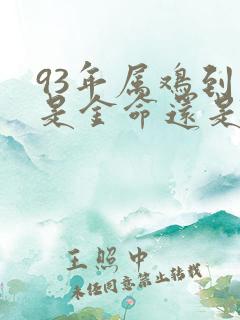 93年属鸡到
是金命还是
王照中
未经同意禁止转载